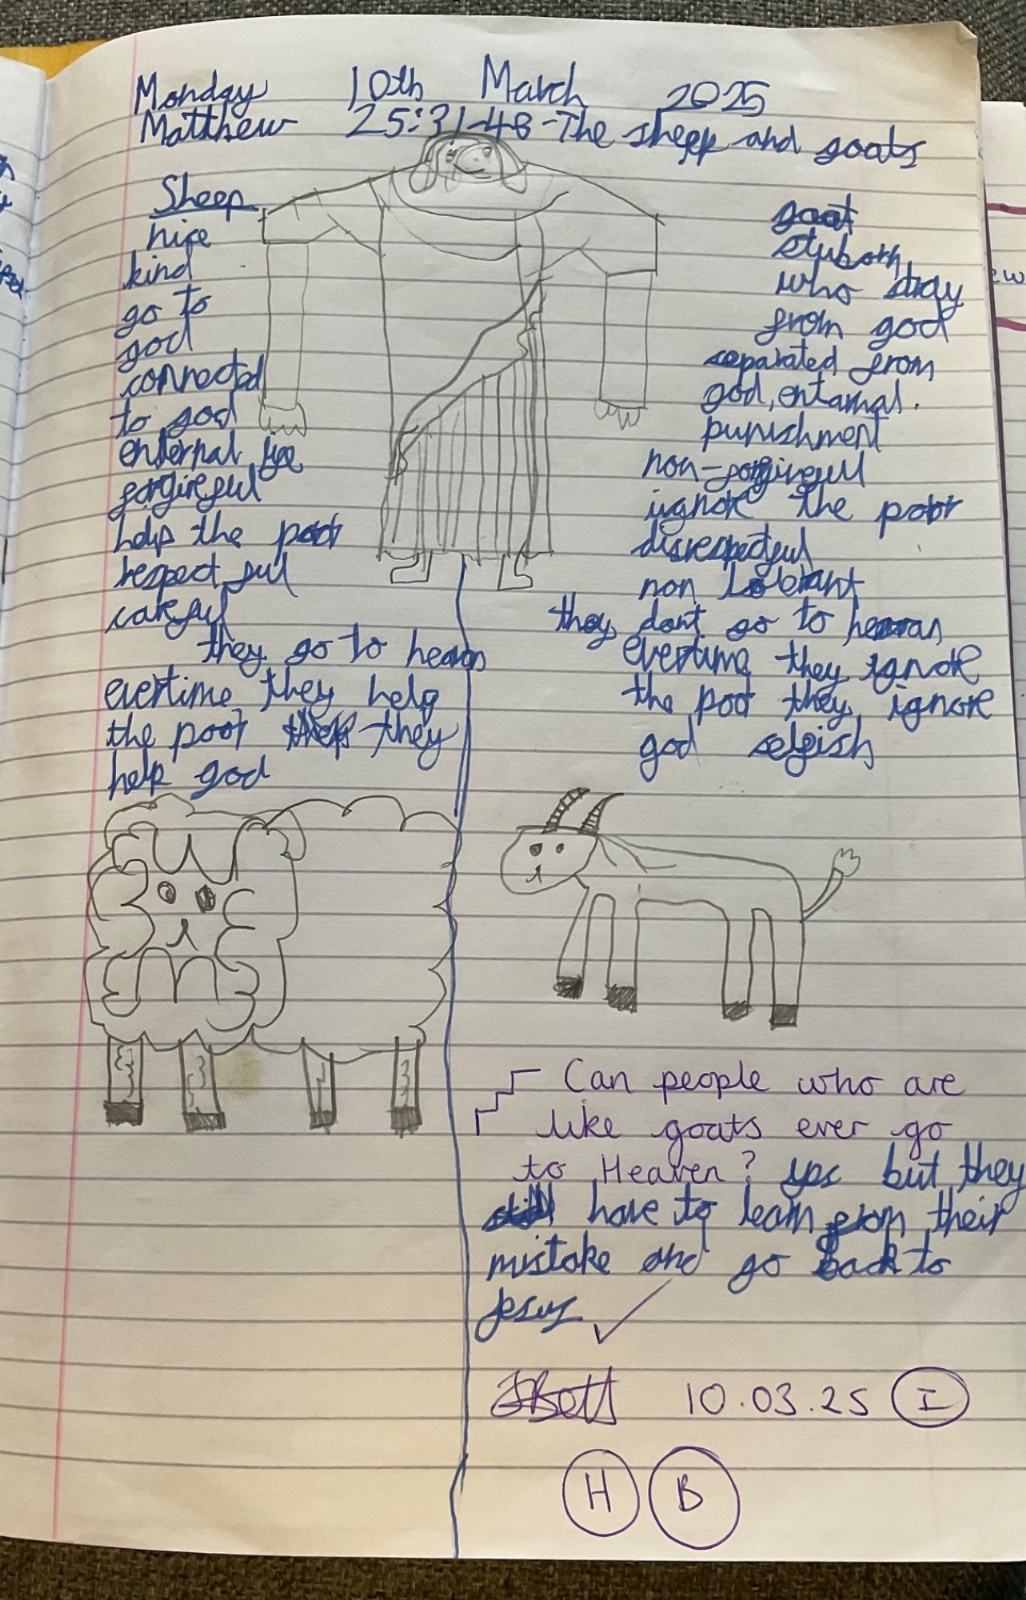 Monday 10th March 2025
Matthew 25:31-48 - The shepp and goats
Sheep
nice
kind
go to
god
connected
to god
enternal life
forgireful
help the poor
respectful
careful
they go to heaven
evertime they help
the poor they
help god
goat
stuborn
who stray
from god
separated from
god, entarnal.
punishment
non-forgireful
ignore the poor
disrespectful
non tolerant
they dont go to heavan
evertime they ignore
the poor they ignore
god selfish
Can people who are
like goats ever go
to Heaven? yes but they
have to learn from their
mistake and go back to
jesus
10.03.25 I
H B